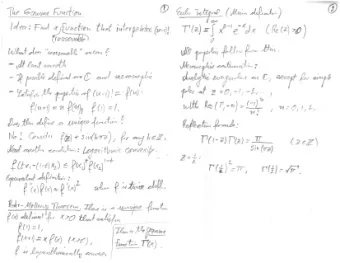 The Gamma Function ①
Idea: Find a function that interpolates (n-1)!
(reasonable)
What does "reasonable" mean?
- At least smooth
- If possible defined on ℂ and meromorphic
- Satisfies the properties of (n-1)! = f(n):
f(n+1) = n f(n), f(1) = 1.
Does this define a unique function?
No! Consider f(x) + sin(kπx), for any k∈ℤ.
Need another condition: Logarithmic convexity.
f(tx₁+(1-t)x₂) ≤ f(x₁)ᵗ f(x₂)¹⁻ᵗ
Equivalent definition:
f''(x) f(x) ≥ f'(x)² when f is twice diff.
Bohr-Mollerup Theorem. There is a unique function
f(x) defined for x>0 that satisfies
f(1) = 1,
f(x+1) = x f(x) (x>0),
f is logarithmically convex.
This is the gamma
function Γ(x).
Euler Integral (Main definition) ②
Γ(z) = ∫₀^∞ x^{z-1} e^{-x} dx (Re(z)>0)
All properties follow from this.
Meromorphic continuation:
Analytic everywhere on ℂ, except for simple
poles at z = 0, -1, -2, ...
with Res(Γ, -n) = (-1)ⁿ/n!, n = 0, 1, 2, ...
Reflection formula:
Γ(1-z)Γ(z) = π/sin(πz) (z∉ℤ)
z = ½:
Γ(½)² = π, Γ(½) = √π.